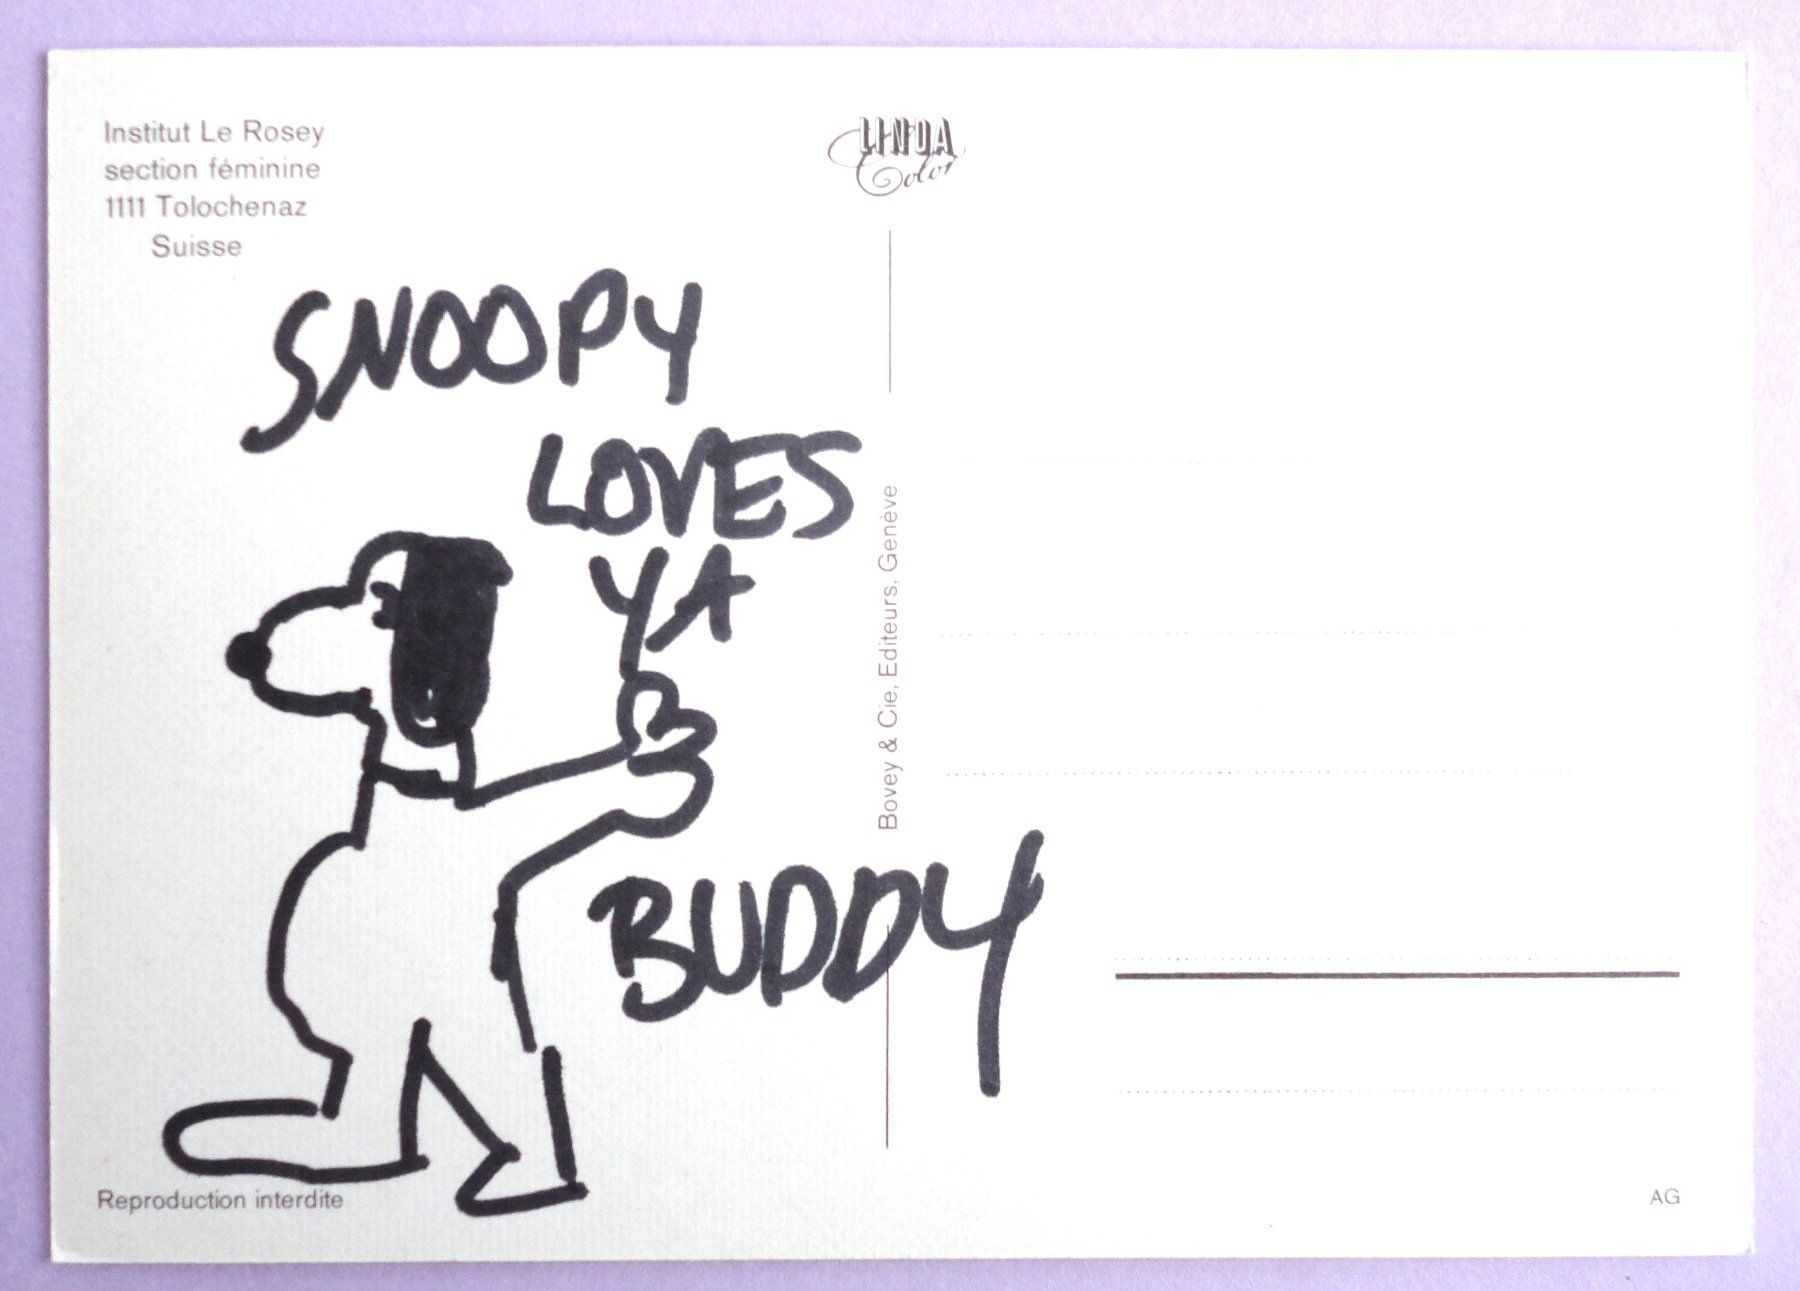 Institut Le Rosey
section féminine
1111 Tolochenaz
Suisse
LINDA
Color
SNOOPY
LOVES
YA
BUDDY
Bovey & Cie, Editeurs, Genève
Reproduction interdite
AG